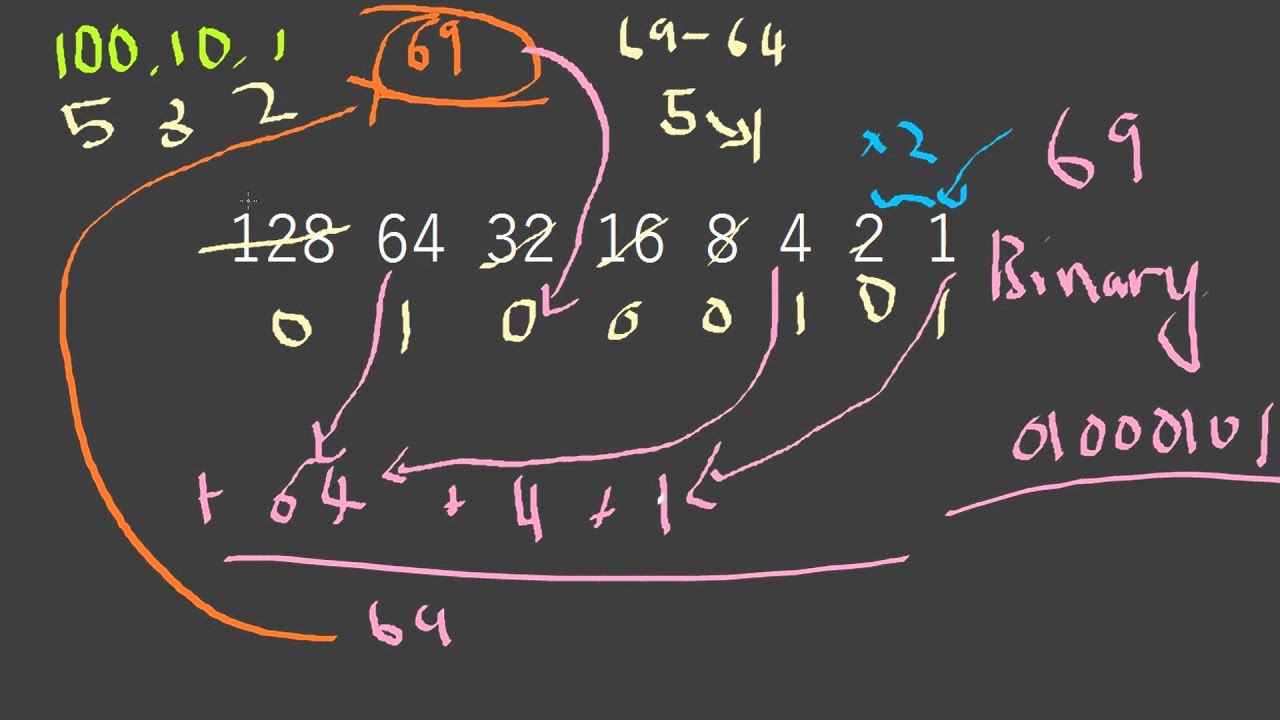 100,10,1 69 69-64
5 3 2 5 1
×2 69
128 64 32 16 8 4 2 1 Binary
0 1 0 0 0 1 0 1
01000101
+ 64 + 4 + 1
69